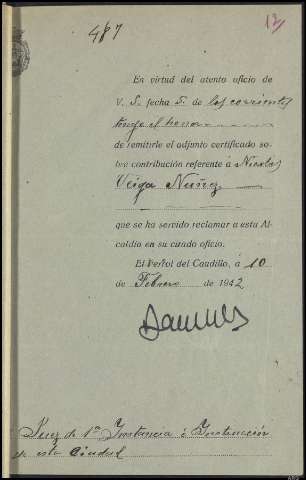 487
12
En virtud del atento oficio de
V. S. fecha 5. de los corrientes
tengo el honor
de remitirle el adjunto certificado so-
bre contribución referente á Nicolas
Veiga Nuñez
que se ha servido reclamar a esta Al-
caldía en su citado oficio.
El Ferrol del Caudillo, á 10
de Febrero de 1942
Juez de 1ª Instancia é Instrucción
de esta Ciudad